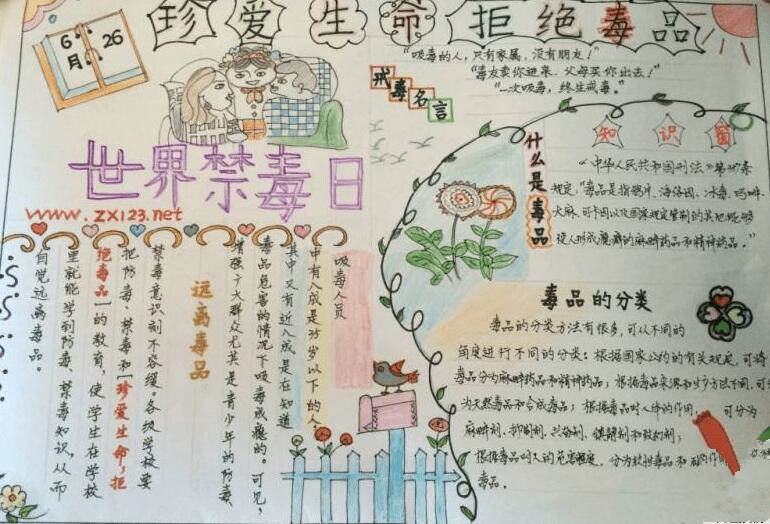 珍爱生命 拒绝毒品
6月26
世界禁毒日
www.zx123.net
戒毒名言
“吸毒的人，只有家属，没有朋友！”
“毒友卖你进来，父母买你出去！”
“一次吸毒，终生戒毒。”
知识窗
什么是毒品
“《中华人民共和国刑法》第357条
规定，“毒品是指鸦片、海洛因、冰毒、吗啡、
大麻、可卡因以及国家规定管制的其他能够
使人形成瘾癖的麻醉药品和精神药品。”
毒品的分类
毒品的分类方法有很多，可从不同的
角度进行不同的分类：根据国家公约的有关规定，可将
毒品分为麻醉药品和精神药品；根据毒品来源和生产方法不同，可
为天然毒品和合成毒品；根据毒品对人体的作用， 可分为
麻醉剂、抑制剂、兴奋剂、镇静剂和致幻剂；
根据毒品对人的危害程度，分为软性毒品和 的作用
毒品。
吸毒人员
中有八成是35岁以下的人，
其中又有近八成是在知道
毒品危害的情况下吸毒成瘾的。可见，
增强广大群众尤其是青少年的防毒、
远离毒品
禁毒意识刻不容缓。各级学校要
把防毒、禁毒和“珍爱生命，拒
绝毒品”的教育，使学生在学校
里就能学到防毒、禁毒知识，从而
自觉远离毒品。